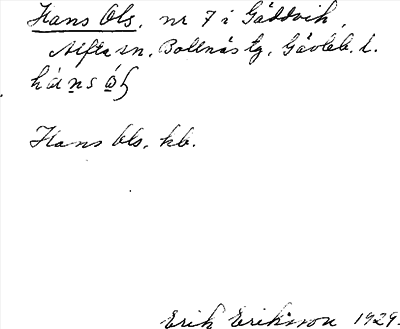 Hans Ols, nr 7 i Gäddvik,
Alfta sn, Bollnäs tg, Gävleb. l.
Hans Ols. kb.
Erik Eriksson 1929.